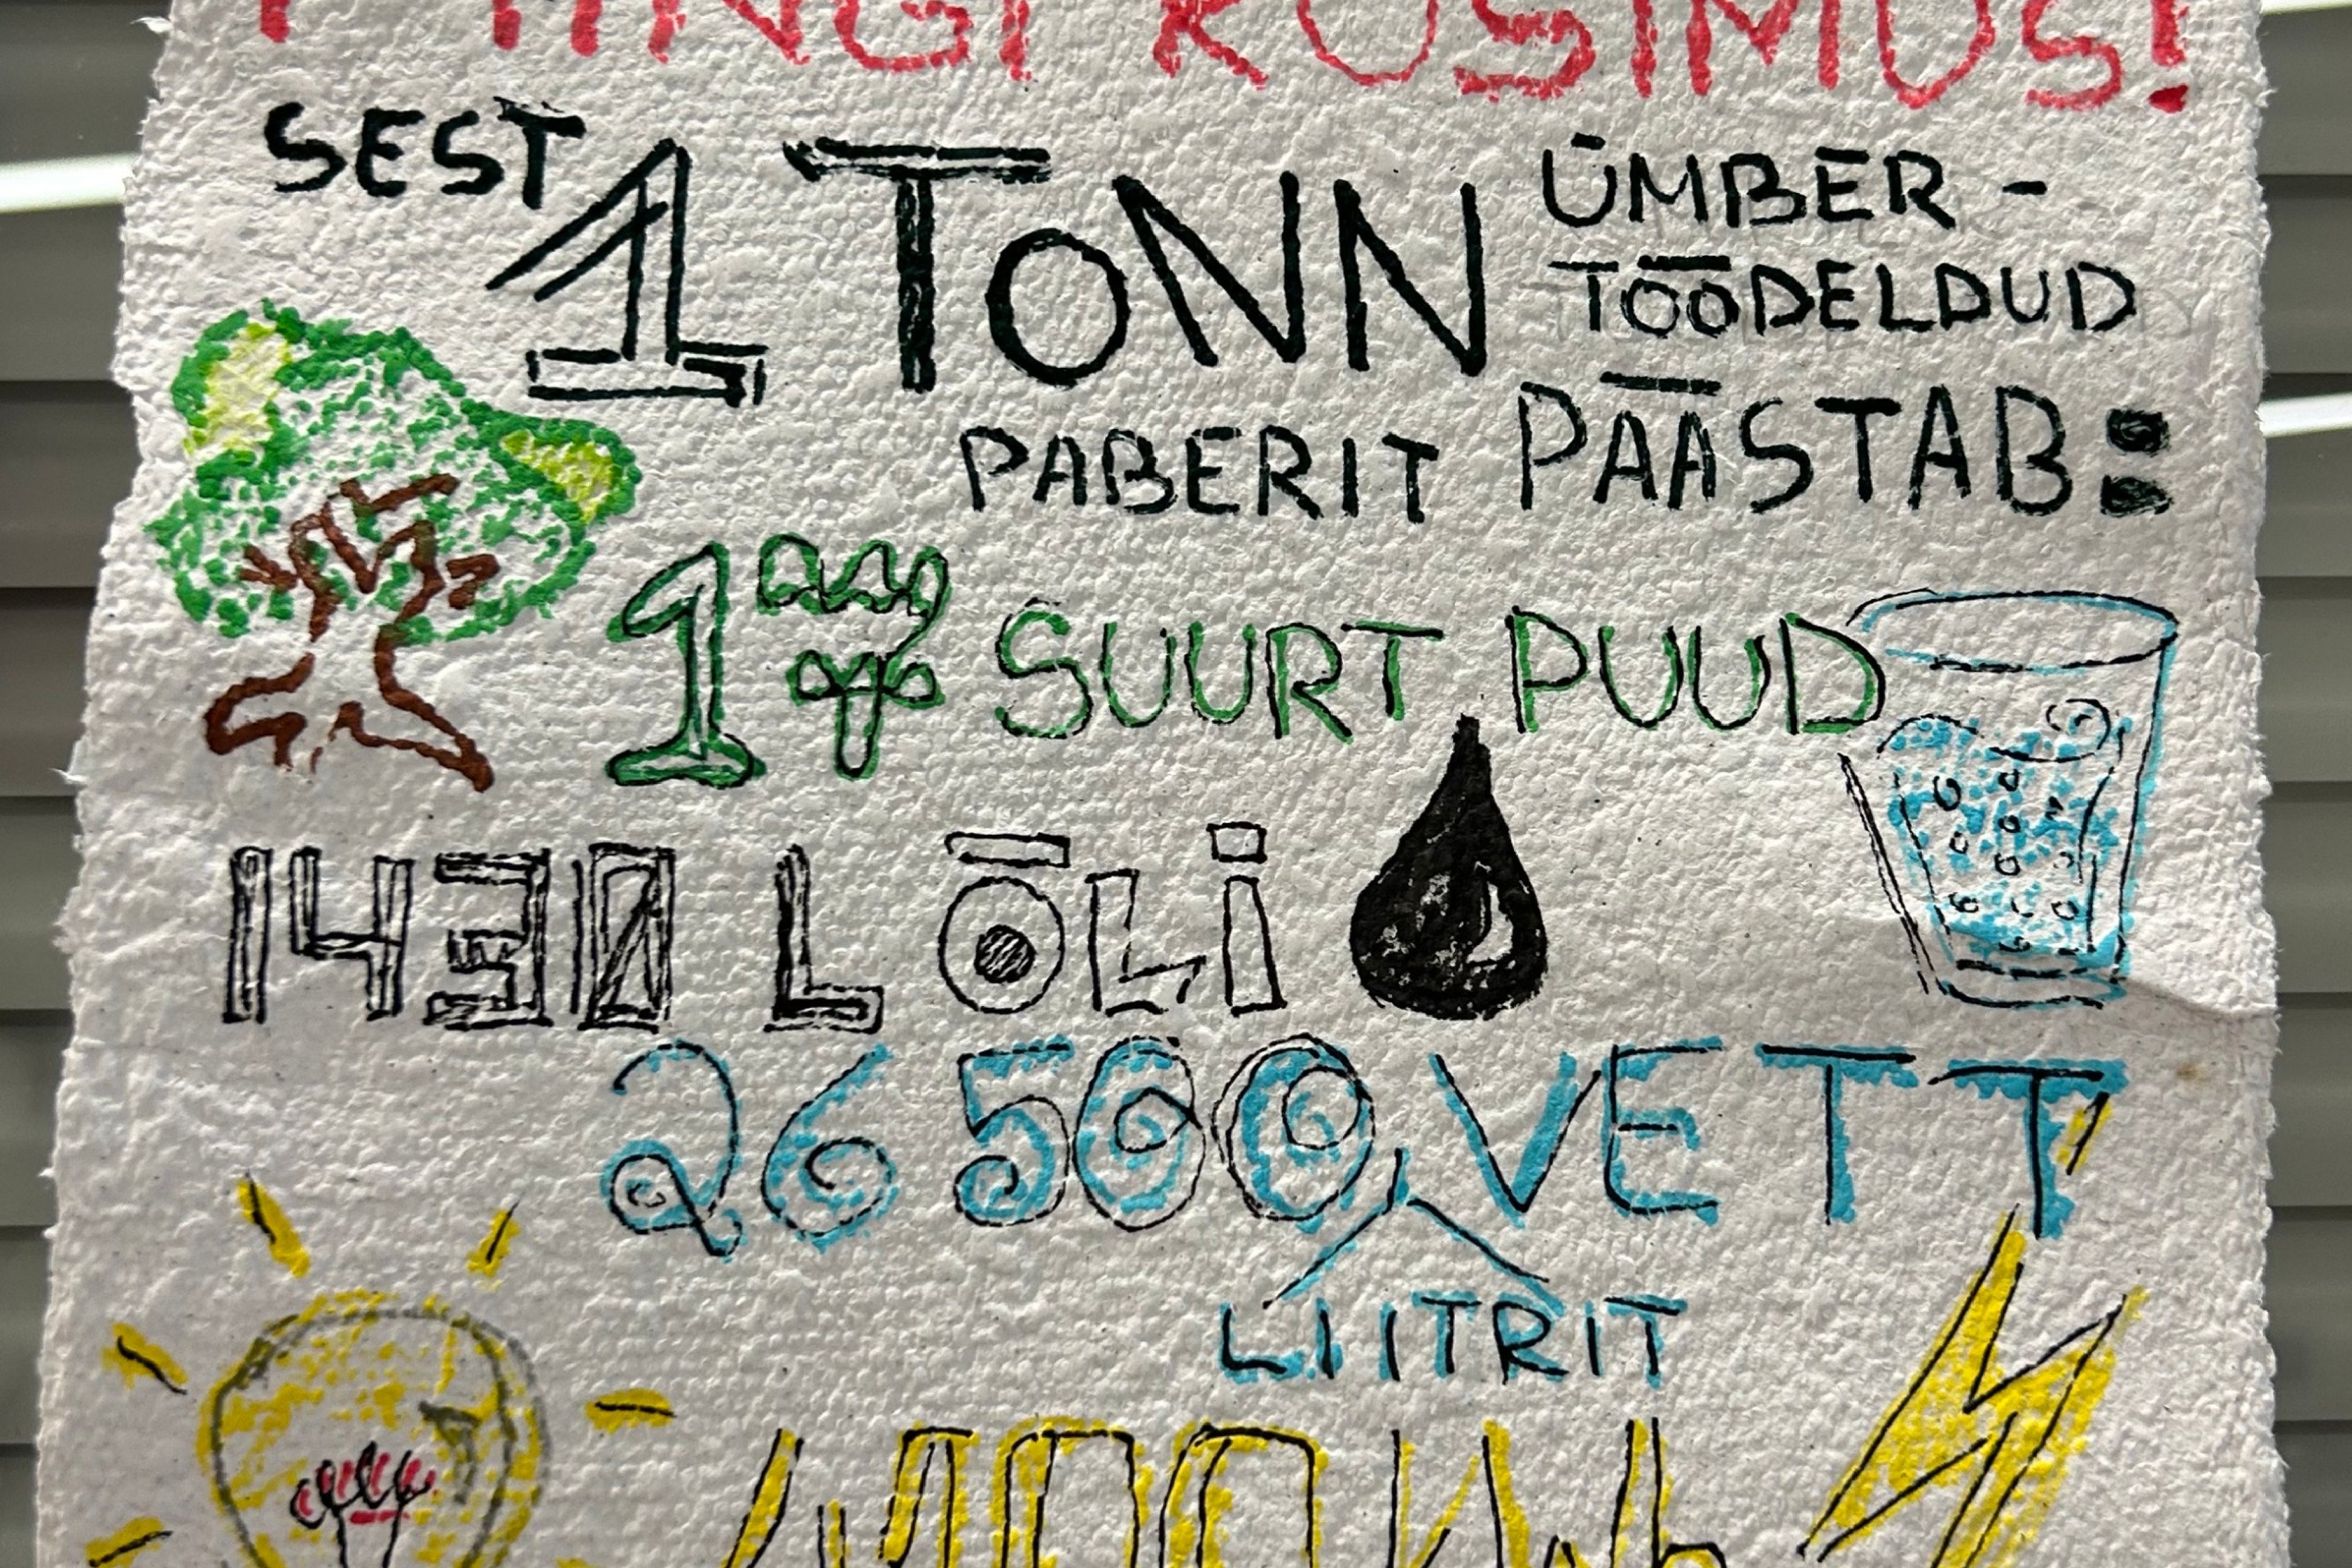 KÜSIMUS!
SEST 1 TONN ÜMBER-
TÖÖDELDUD
PABERIT PÄÄSTAB:
17 SUURT PUUD
1430 L ÕLI
26 500 VETT
LIITRIT